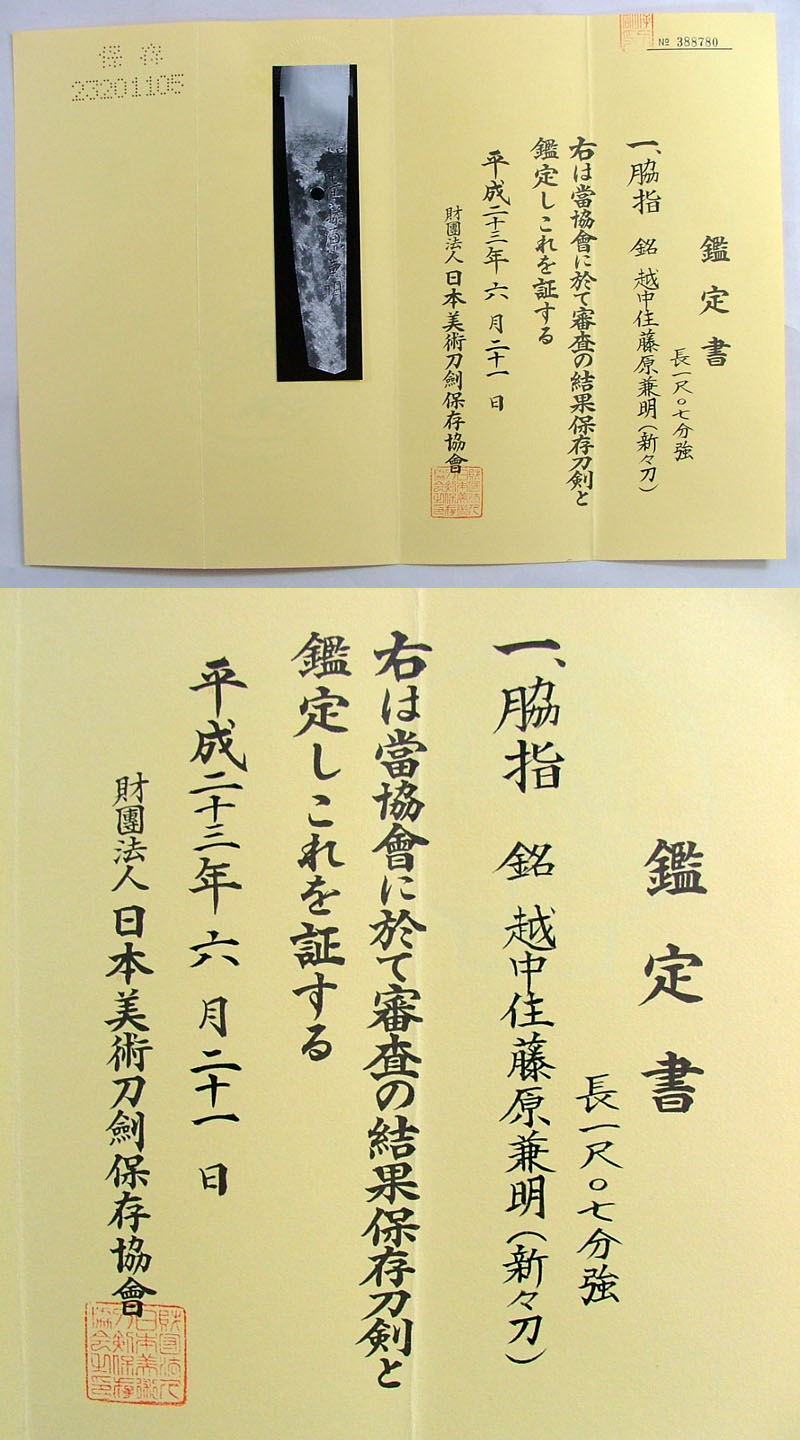 保存
23201105
№ 388780
鑑定書
長一尺〇七分強
一、脇指 銘 越中住藤原兼明(新々刀)
右は當協會に於て審査の結果保存刀剣と
鑑定しこれを証する
平成二十三年六月二十一日
財團法人日本美術刀劍保存協會
鑑定書
長一尺〇七分強
一、脇指 銘 越中住藤原兼明(新々刀)
右は當協會に於て審査の結果保存刀剣と
鑑定しこれを証する
平成二十三年六月二十一日
財團法人日本美術刀劍保存協會